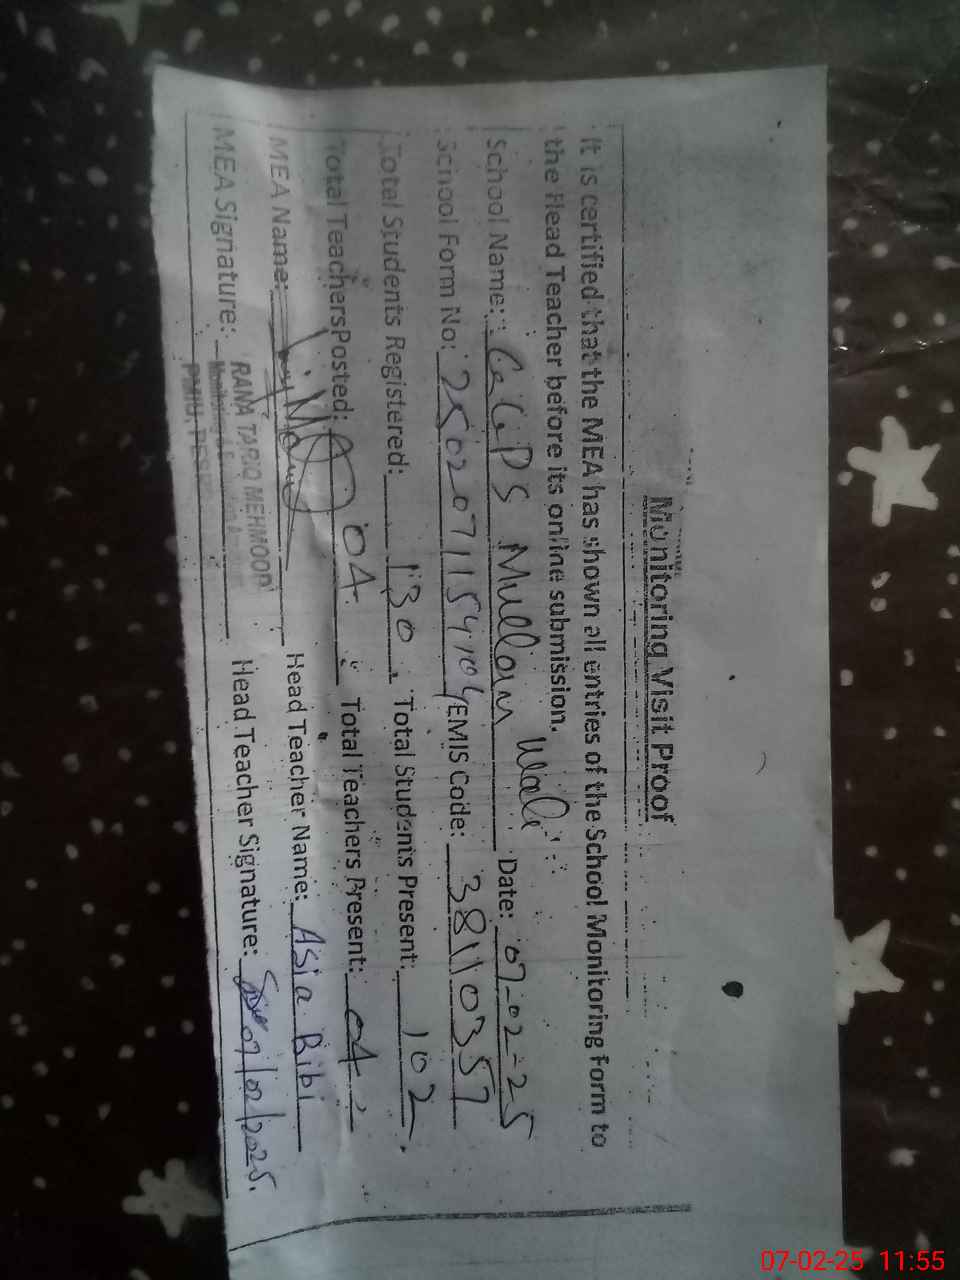 Monitoring Visit Proof
It is certified that the MEA has shown all entries of the School Monitoring Form to
the Head Teacher before its online submission.
School Name: GGPS Mullan Wali Date: 07-02-25
School Form No: 2502071154104 EMIS Code: 38110357
Total Students Registered: 130 Total Students Present: 102
Total Teachers Posted: 04 Total Teachers Present: 04
MEA Name: Head Teacher Name: Asia Bibi
MEA Signature: RANA TARIQ MEHMOOD Head Teacher Signature: 07/02/2025.
Monitoring &
PMIU, PESRP
07-02-25 11:55